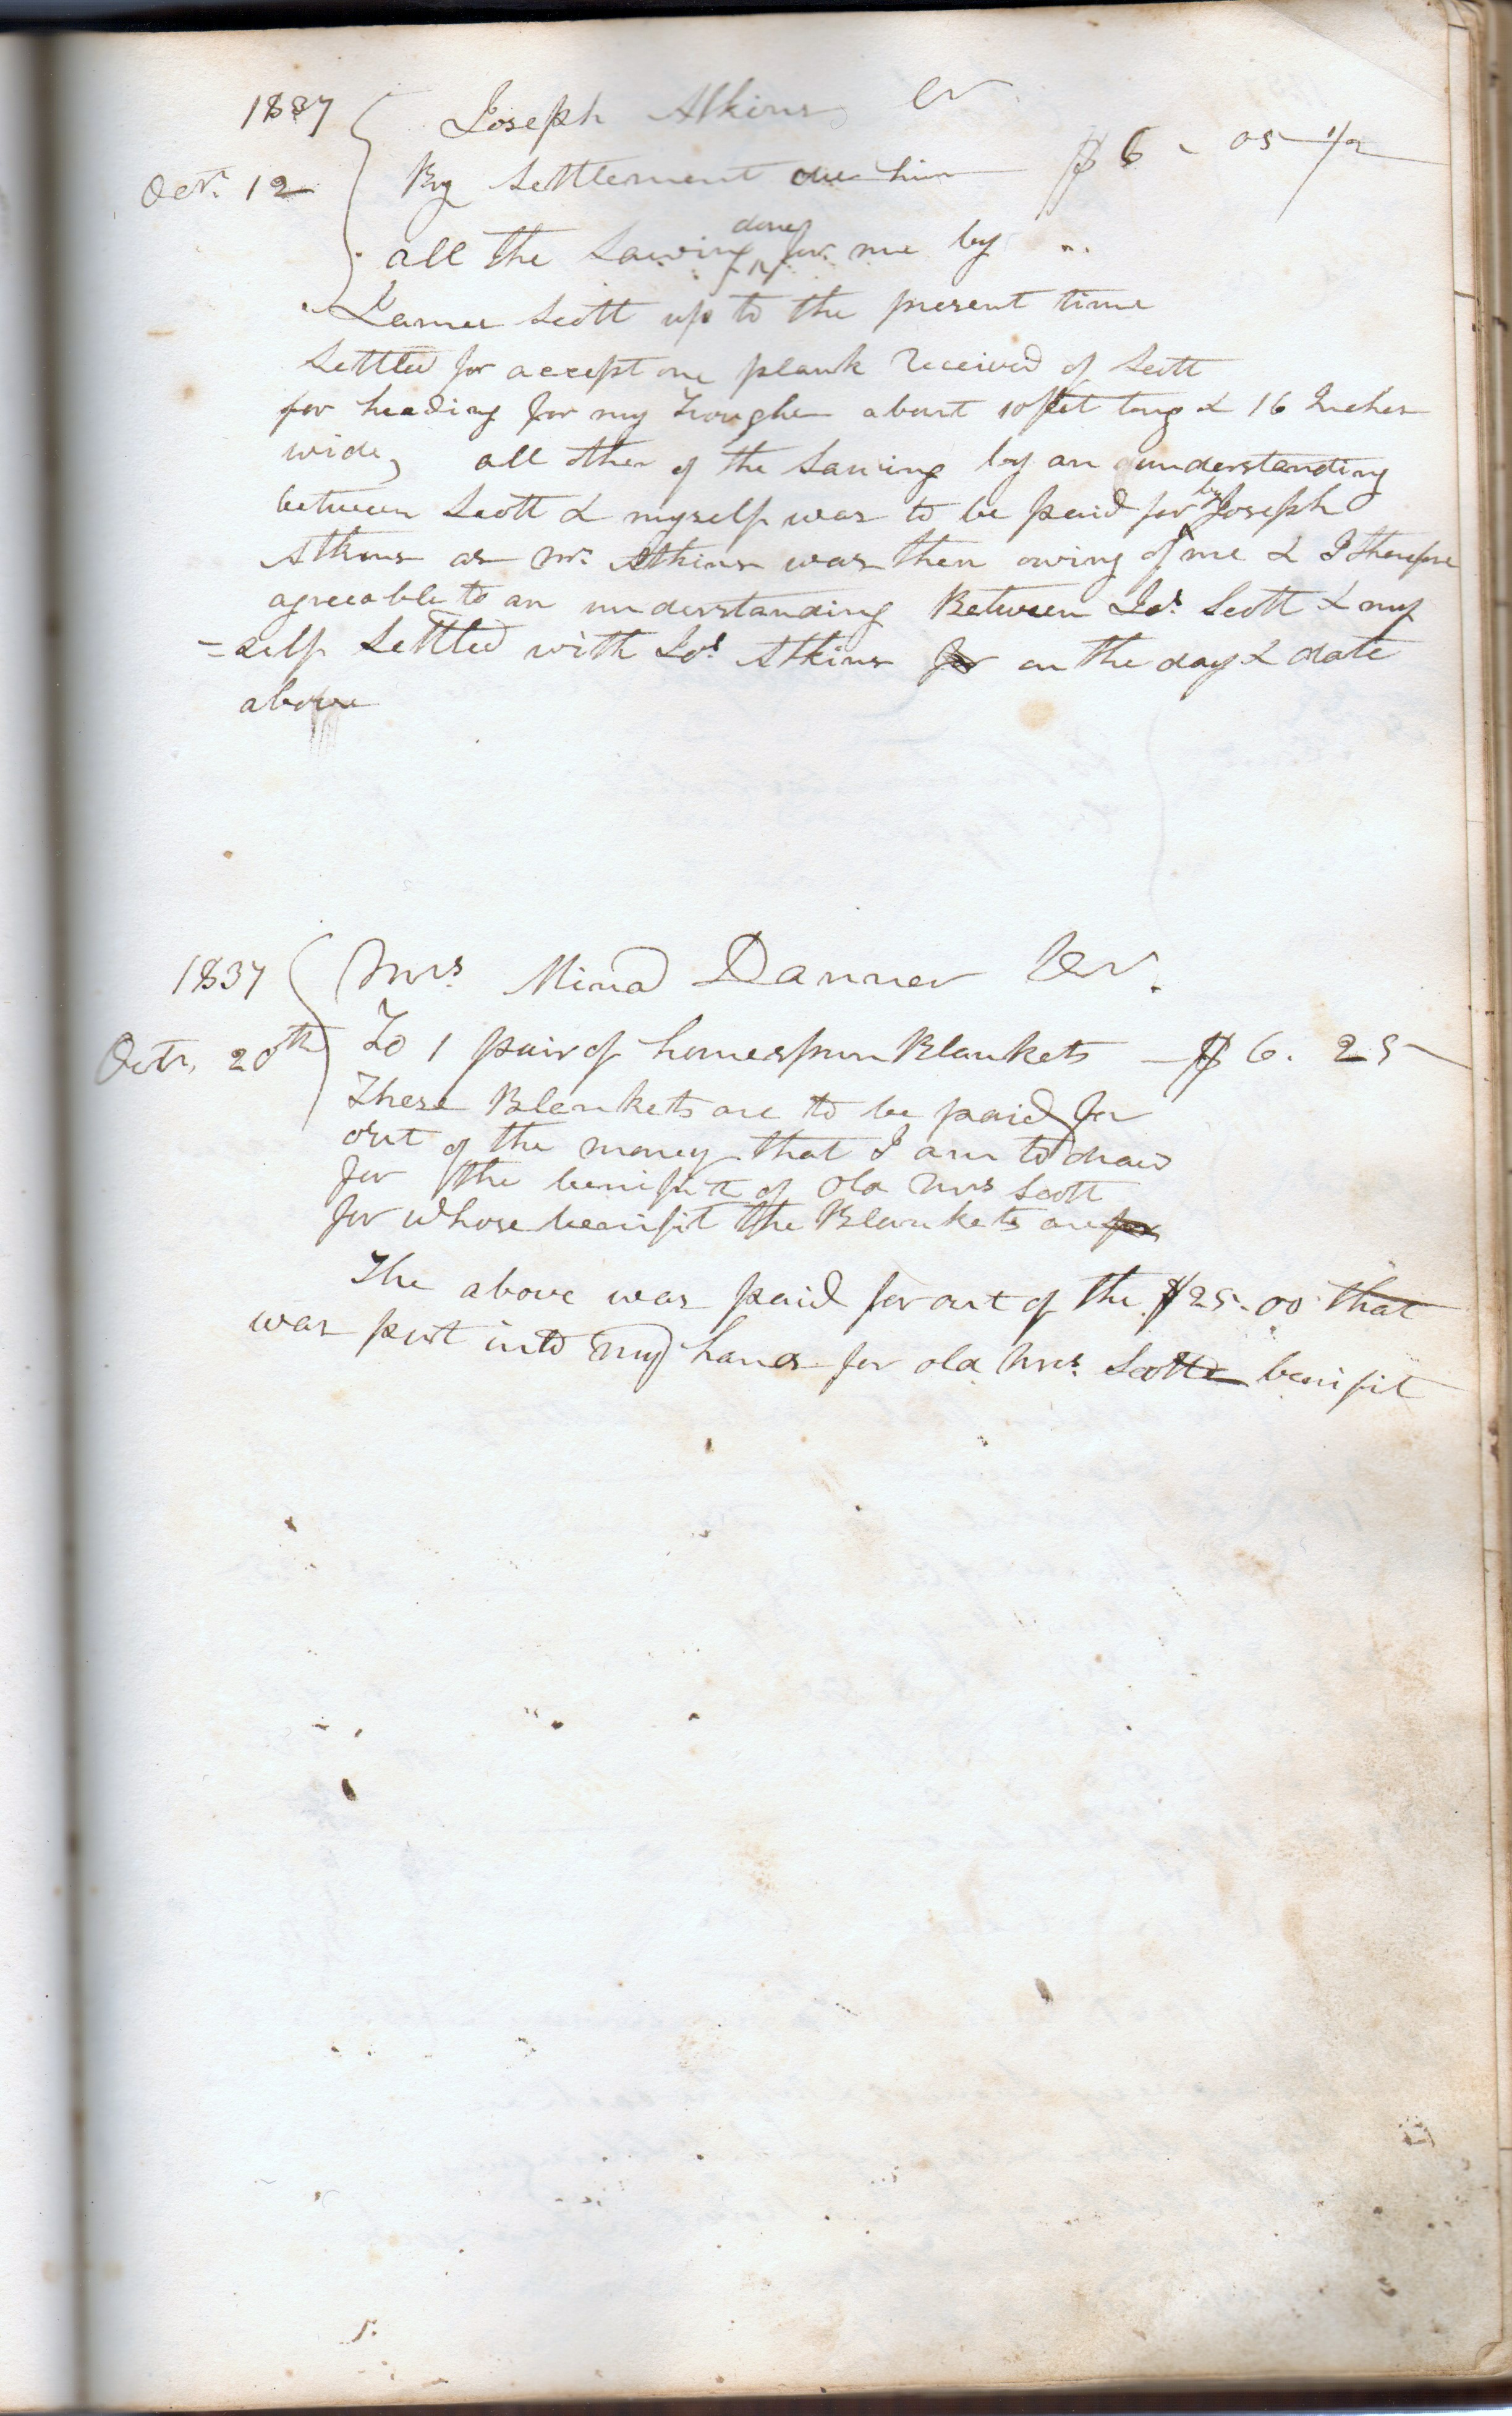 1837 Joseph Atkins Cr
Octr. 12 By Settlement due him $6 - 05 1/2
all the Sawing done for me by
James Scott up to the present time
Settled for accept one plank received of Scott
for heading for my Troughs about 10 feet long & 16 Inches
wide, all other of the Sawing by an understanding
between Scott & myself was to be paid for by Joseph
Atkins as Mr. Atkins was then owing of me & I therefore
agreeable to an understanding Between Jas. Scott & my
=self Settled with Jos. Atkins for on the day & date
above
1837 Mrs. Mina Danner Dr.
Octr. 20th To 1 pair of homespun Blankets - $6. 25
These Blankets are to be paid for
out of the money that I am to draw
for the benifit of old Mrs Scott
for whose benifit the Blankets are for
The above was paid for out of the $25-00 that
was put into my hands for old Mrs. Scotts benifit